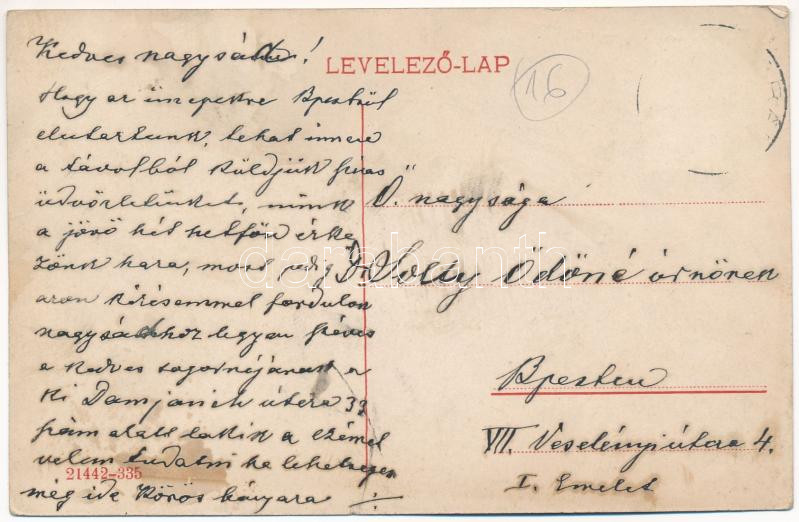 Kedves nagysád!
Hogy az ünnepekre Bpestről
elutaztunk, tehát innen
a távolból küldjük szíves
üdvözletünket, mink
a jövő hét hetfőn érke
zünk haza, most pedig
azon kérésemmel fordulok
nagysádhoz legyen szíves
a kedves sogornőjának a
ki Damjanich útcza 39
szám alatt lakik a czímét
velem tudatni ha lehetséges
még ide Körösbányara
21442-335
LEVELEZŐ-LAP
16
Ő nagysága
Dr Soly Ödöné úrnőnek
Bpesten
VII. Veselényi útcza 4.
I. Emelet
darabanth